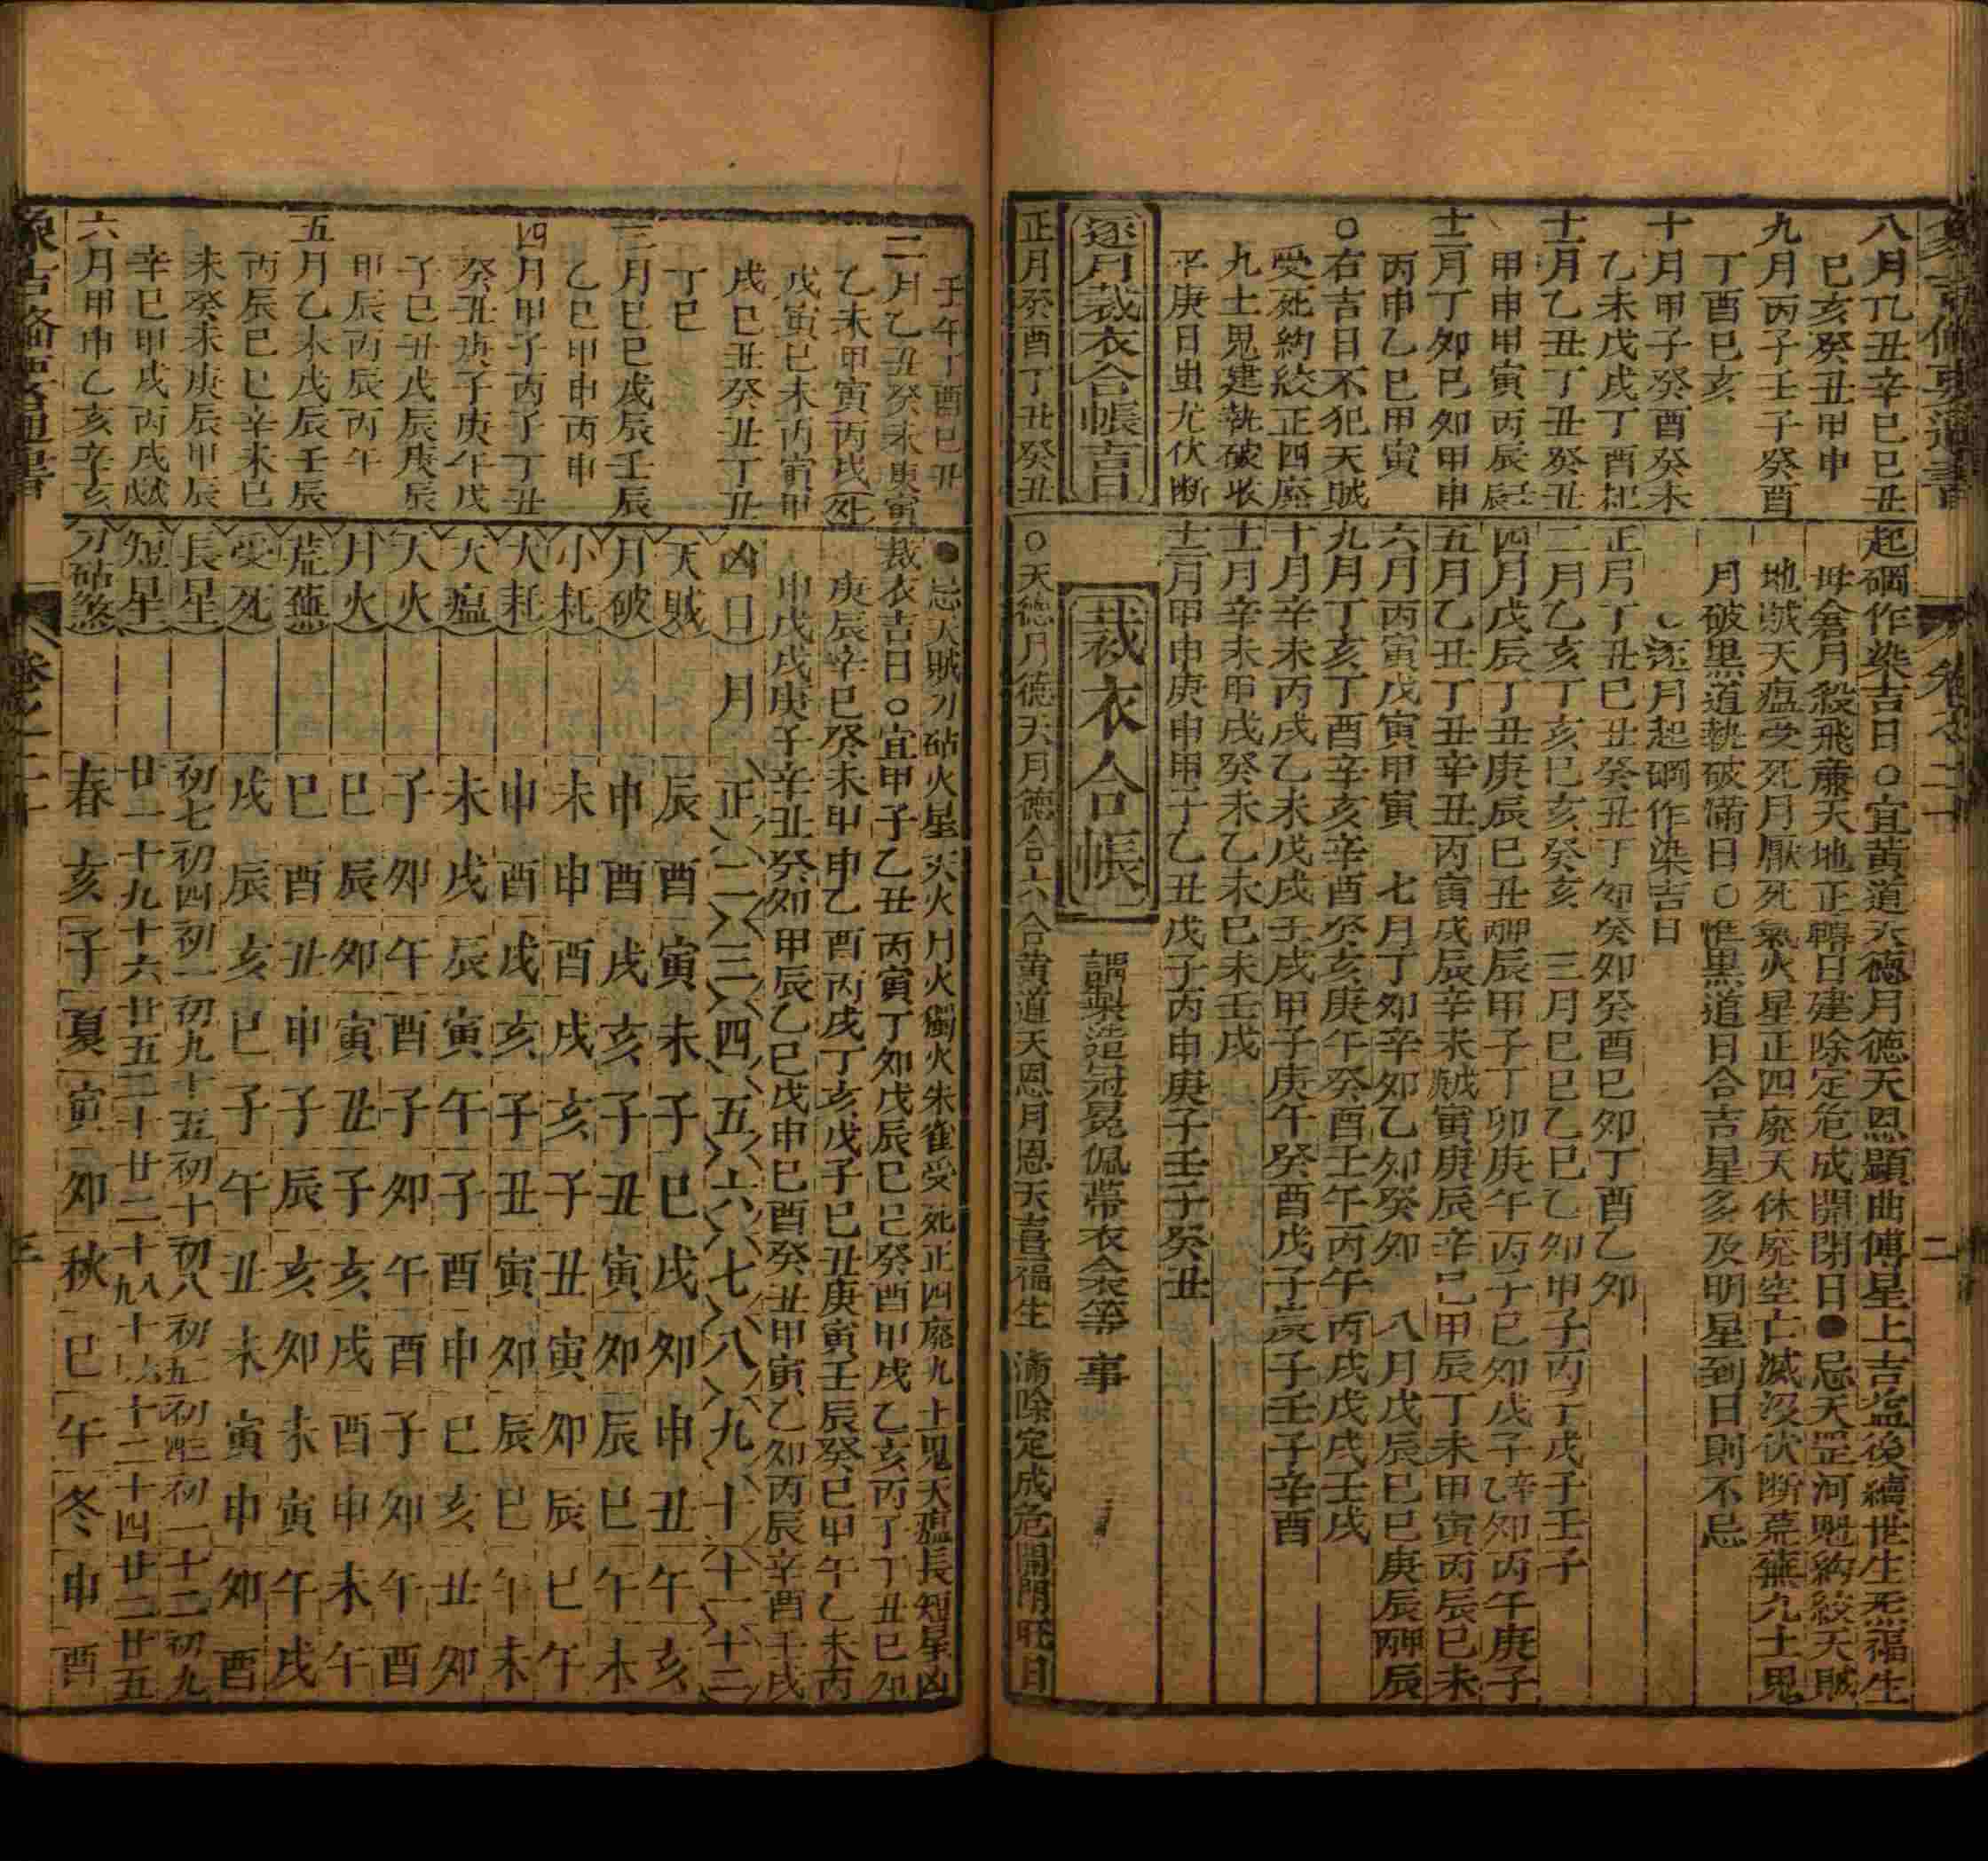 八月乙丑辛巳己丑
己亥癸丑甲申
九月丙子壬子癸酉
丁酉己亥
十月甲子癸酉癸未
乙未戊戌丁酉
十一月乙丑丁丑癸丑
甲申甲寅丙辰
十二月丁卯己卯甲申
丙申乙巳甲寅
○右吉日不犯天賊
受死約絞正四廢
九土鬼建執破收
平庚日虫尤伏断
逐月裁衣合帳吉日
正月癸酉丁丑癸丑
起磵作染吉日○宜黄道天德月德天恩顯曲傅星上吉益後續世生炁福生
母倉月殺飛亷天地正轉日建除定危成開閉日●忌天罡河魁約絞天賊
地賊天瘟受死月厭死氣火星正四廢天休廢空亡滅没伏断荒蕪九土鬼
月破黒道執破滿日○惟黒道日合吉星多及明星到日則不忌
○逐月起磵作染吉日
正月丁丑己丑癸丑丁卯癸卯癸酉己卯丁酉乙卯
二月乙亥丁亥己亥癸亥 三月己巳乙巳乙卯甲子丙子戊子壬子
四月戊辰丁丑庚辰己丑
五月乙丑丁丑辛丑丙寅戊辰辛未
六月丙寅戊寅甲寅 七月丁卯辛卯乙卯癸卯 八月戊辰己巳庚辰
九月丁亥丁酉辛亥辛酉癸亥庚午癸酉壬午丙午丙戌戊戌壬戌
十月辛未丙戌乙未戊戌壬戌甲子庚午癸酉戊子庚子壬子辛酉
十一月辛未甲戌癸未乙未己未壬戌
十二月甲申庚申甲子乙丑戊子丙申庚子壬子癸丑
裁衣合帳
謂製造冠冕佩帶衣衾等事
○天德月德天月德合六合黄道天恩月恩天喜福生 滿除定成危開閉旺日
壬午丁酉己丑
二月乙丑癸未庚寅
乙未甲寅丙戌
戊寅己未丙寅甲
戌己丑癸丑丁丑
丁巳
三月己巳戊辰壬辰
乙巳甲申丙申
四月甲子丙子丁丑
癸丑庚子庚午戊
子己丑戊辰庚辰
甲辰丙辰丙午
五月乙未戊辰壬辰
丙辰己巳辛未己
未癸未庚辰甲辰
辛巳甲戌丙戌
六月甲申乙亥辛亥
●忌天賊刀砧火星天火月火獨火朱雀受死正四廢九土鬼天瘟長短星凶
裁衣吉日○宜甲子乙丑丙寅丁卯戊辰己巳癸酉甲戌乙亥丙子丁丑己卯
庚辰辛巳癸未甲申乙酉丙戌丁亥戊子己丑庚寅壬辰癸巳甲午乙未丙
申戊戌庚子辛丑癸卯甲辰乙巳戊申己酉癸丑甲寅乙卯丙辰辛酉壬戌
凶日 月 正 二 三 四 五 六 七 八 九 十 十一 十二
天賊 辰 酉 寅 未 子 巳 戌 卯 申 丑 午 亥
月破 申 酉 戌 亥 子 丑 寅 卯 辰 巳 午 未
小耗 未 申 酉 戌 亥 子 丑 寅 卯 辰 巳 午
大耗 申 酉 戌 亥 子 丑 寅 卯 辰 巳 午 未
天瘟 未 戌 辰 寅 午 子 酉 申 巳 亥 丑 卯
天火 子 卯 午 酉 子 卯 午 酉 子 卯 午 酉
月火 巳 辰 卯 寅 丑 子 亥 戌 酉 申 未 午
荒蕪 巳 酉 丑 申 子 辰 亥 卯 未 寅 午 戌
受死 戌 辰 亥 巳 子 午 丑 未 寅 申 卯 酉
長星 初七 初四 初一 初九 十五 初十 初八 初二初五 初三初四 初一 十二 初九
短星 廿一 十九 十六 廿五 二十 廿二 十八十九 十六 十四 廿二 廿五
刀砧煞 春 亥 子 夏 寅 卯 秋 巳 午 冬 申 酉